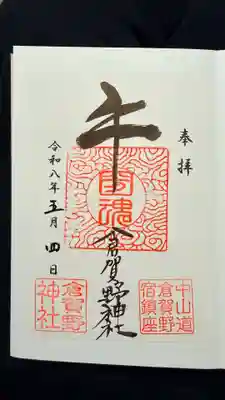 奉拝
牛
国魂
倉賀野神社
令和八年五月四日
中山道
倉賀野
宿鎮座
倉賀野
神社